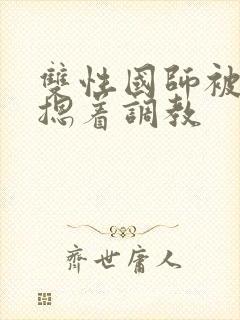 雙性國師被
摁着調教
齊世庸人